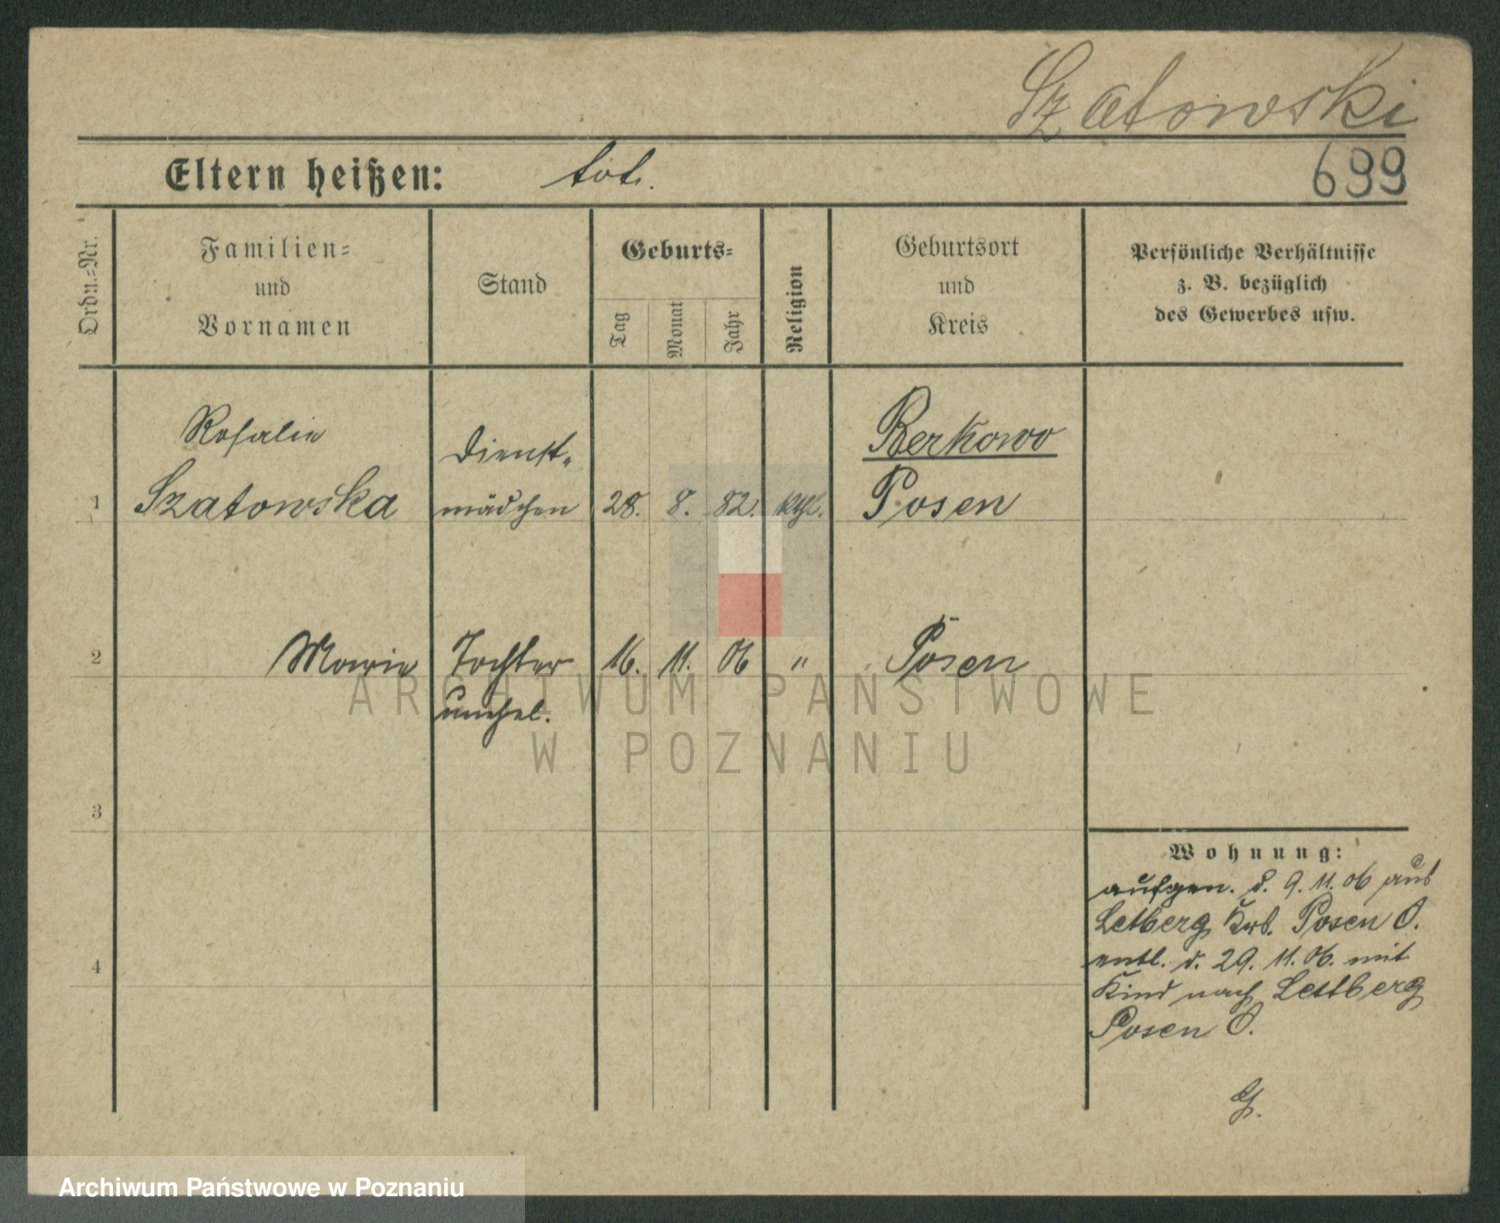 Szatowski
Eltern heißen: tot.
699
Ordn.-Nr.
Familien-
und
Vornamen
Stand
Geburts-
Tag
Monat
Jahr
Religion
Geburtsort
und
Kreis
Persönliche Verhältnisse
z. B. bezüglich
des Gewerbes usw.
Rosalie
Dienst-
Berkowo
1 Szatowska mädchen 28. 8. 82. kth. Posen
2 Marie Tochter 16. 11. 06 " Posen
unehel.
3
Wohnung:
aufgen. d. 9. 11. 06 aus
Letberg Krb. Posen O.
4
entl. d. 29. 11. 06. mit
Kind nach Letberg
Posen O.
G.
ARCHIWUM PAŃSTWOWE
W POZNANIU
Archiwum Państwowe w Poznaniu